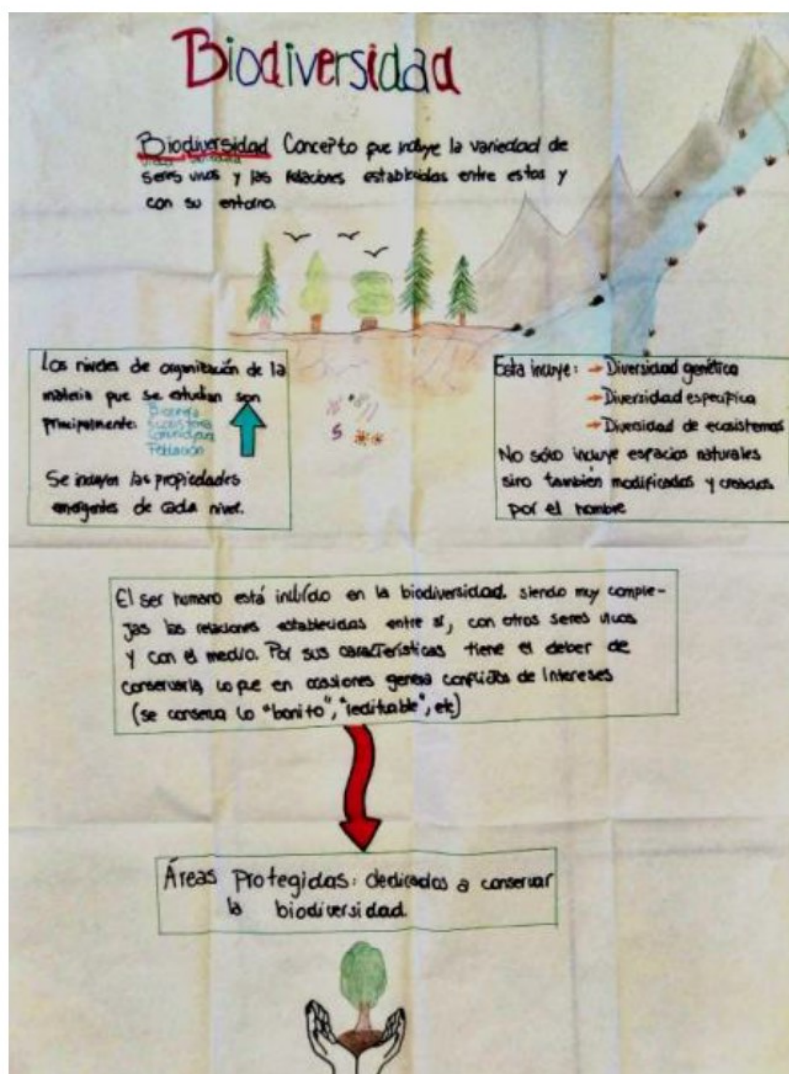 Biodiversidad
Biodiversidad Concepto que incluye la variedad de
seres vivos y las relaciones establecidas entre estos y
con su entorno.
Los niveles de organización de la
materia que se estudian son
principalmente:
Biosfera
Ecosistema
Comunidad
Población
Se incluyen las propiedades
emergentes de cada nivel.
Esta incluye: → Diversidad genética
→ Diversidad específica
→ Diversidad de ecosistemas
No sólo incluye espacios naturales
sino también modificados y creados
por el hombre
El ser humano está incluído en la biodiversidad, siendo muy comple-
jas las relaciones establecidas entre sí, con otros seres vivos
y con el medio. Por sus características tiene el deber de
conservarla, lo que en ocasiones genera conflictos de intereses
(se conserva lo "bonito", etc)
Áreas Protegidas: dedicadas a conservar
la biodiversidad.